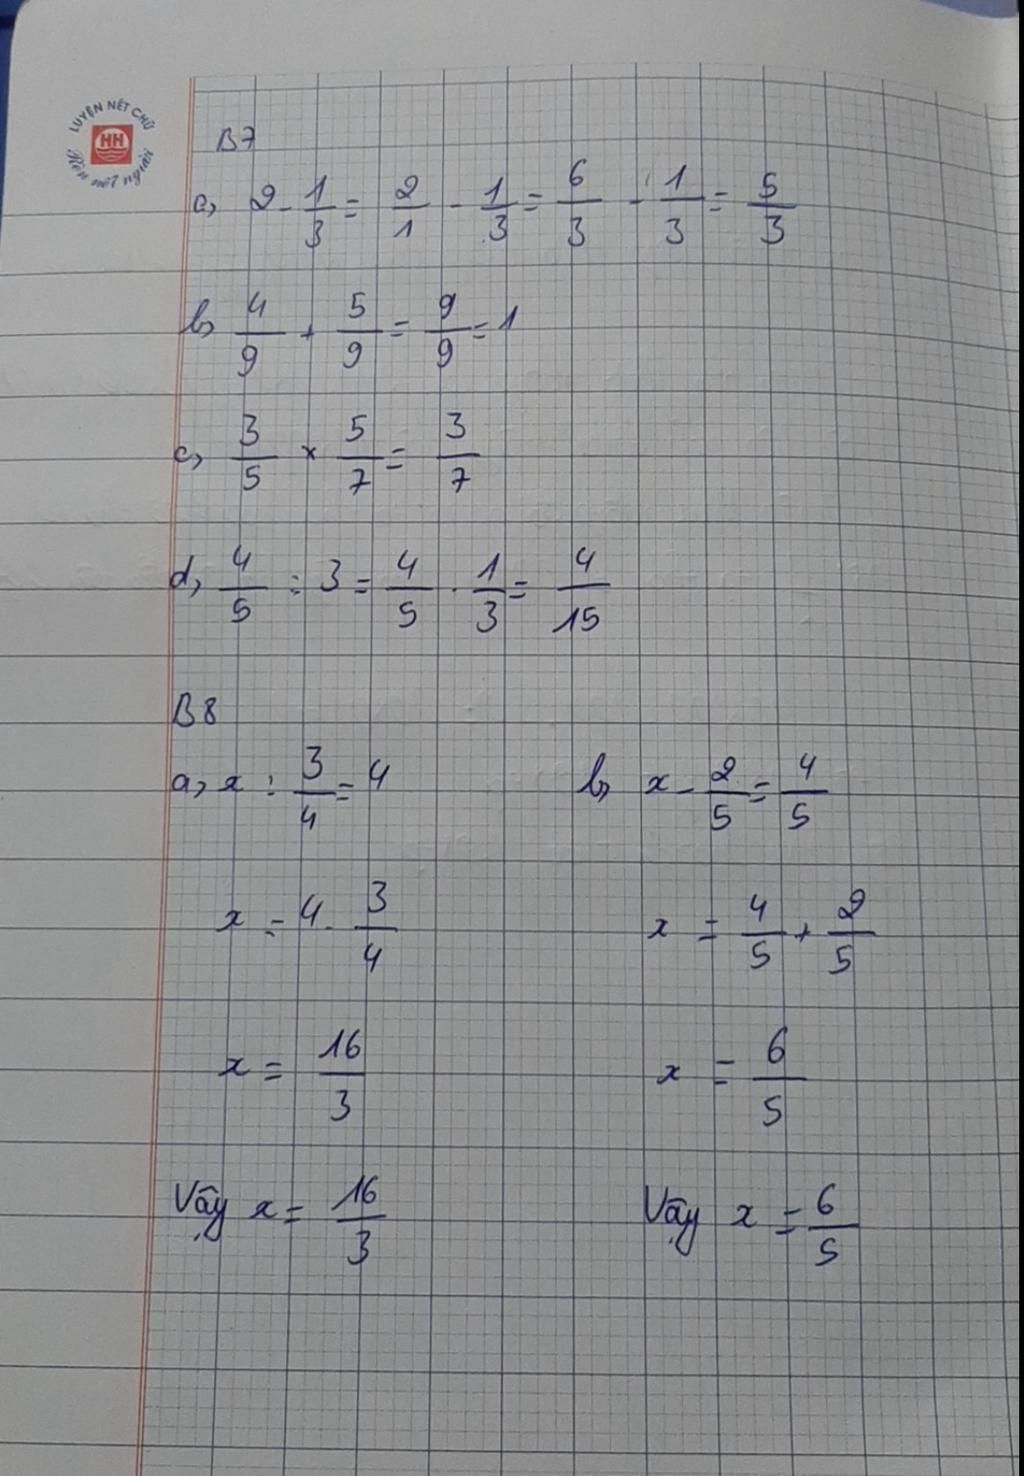 LUYỆN NÉT CHỮ
HH
Rèn nết người
B7
a, 2 - 1/3 = 2/1 - 1/3 = 6/3 - 1/3 = 5/3
b, 4/9 + 5/9 = 9/9 = 1
c, 3/5 × 5/7 = 3/7
d, 4/5 : 3 = 4/5 . 1/3 = 4/15
B8
a, x : 3/4 = 4
x = 4 . 3/4
x = 16/3
Vậy x = 16/3
b, x - 2/5 = 4/5
x = 4/5 + 2/5
x = 6/5
Vậy x = 6/5